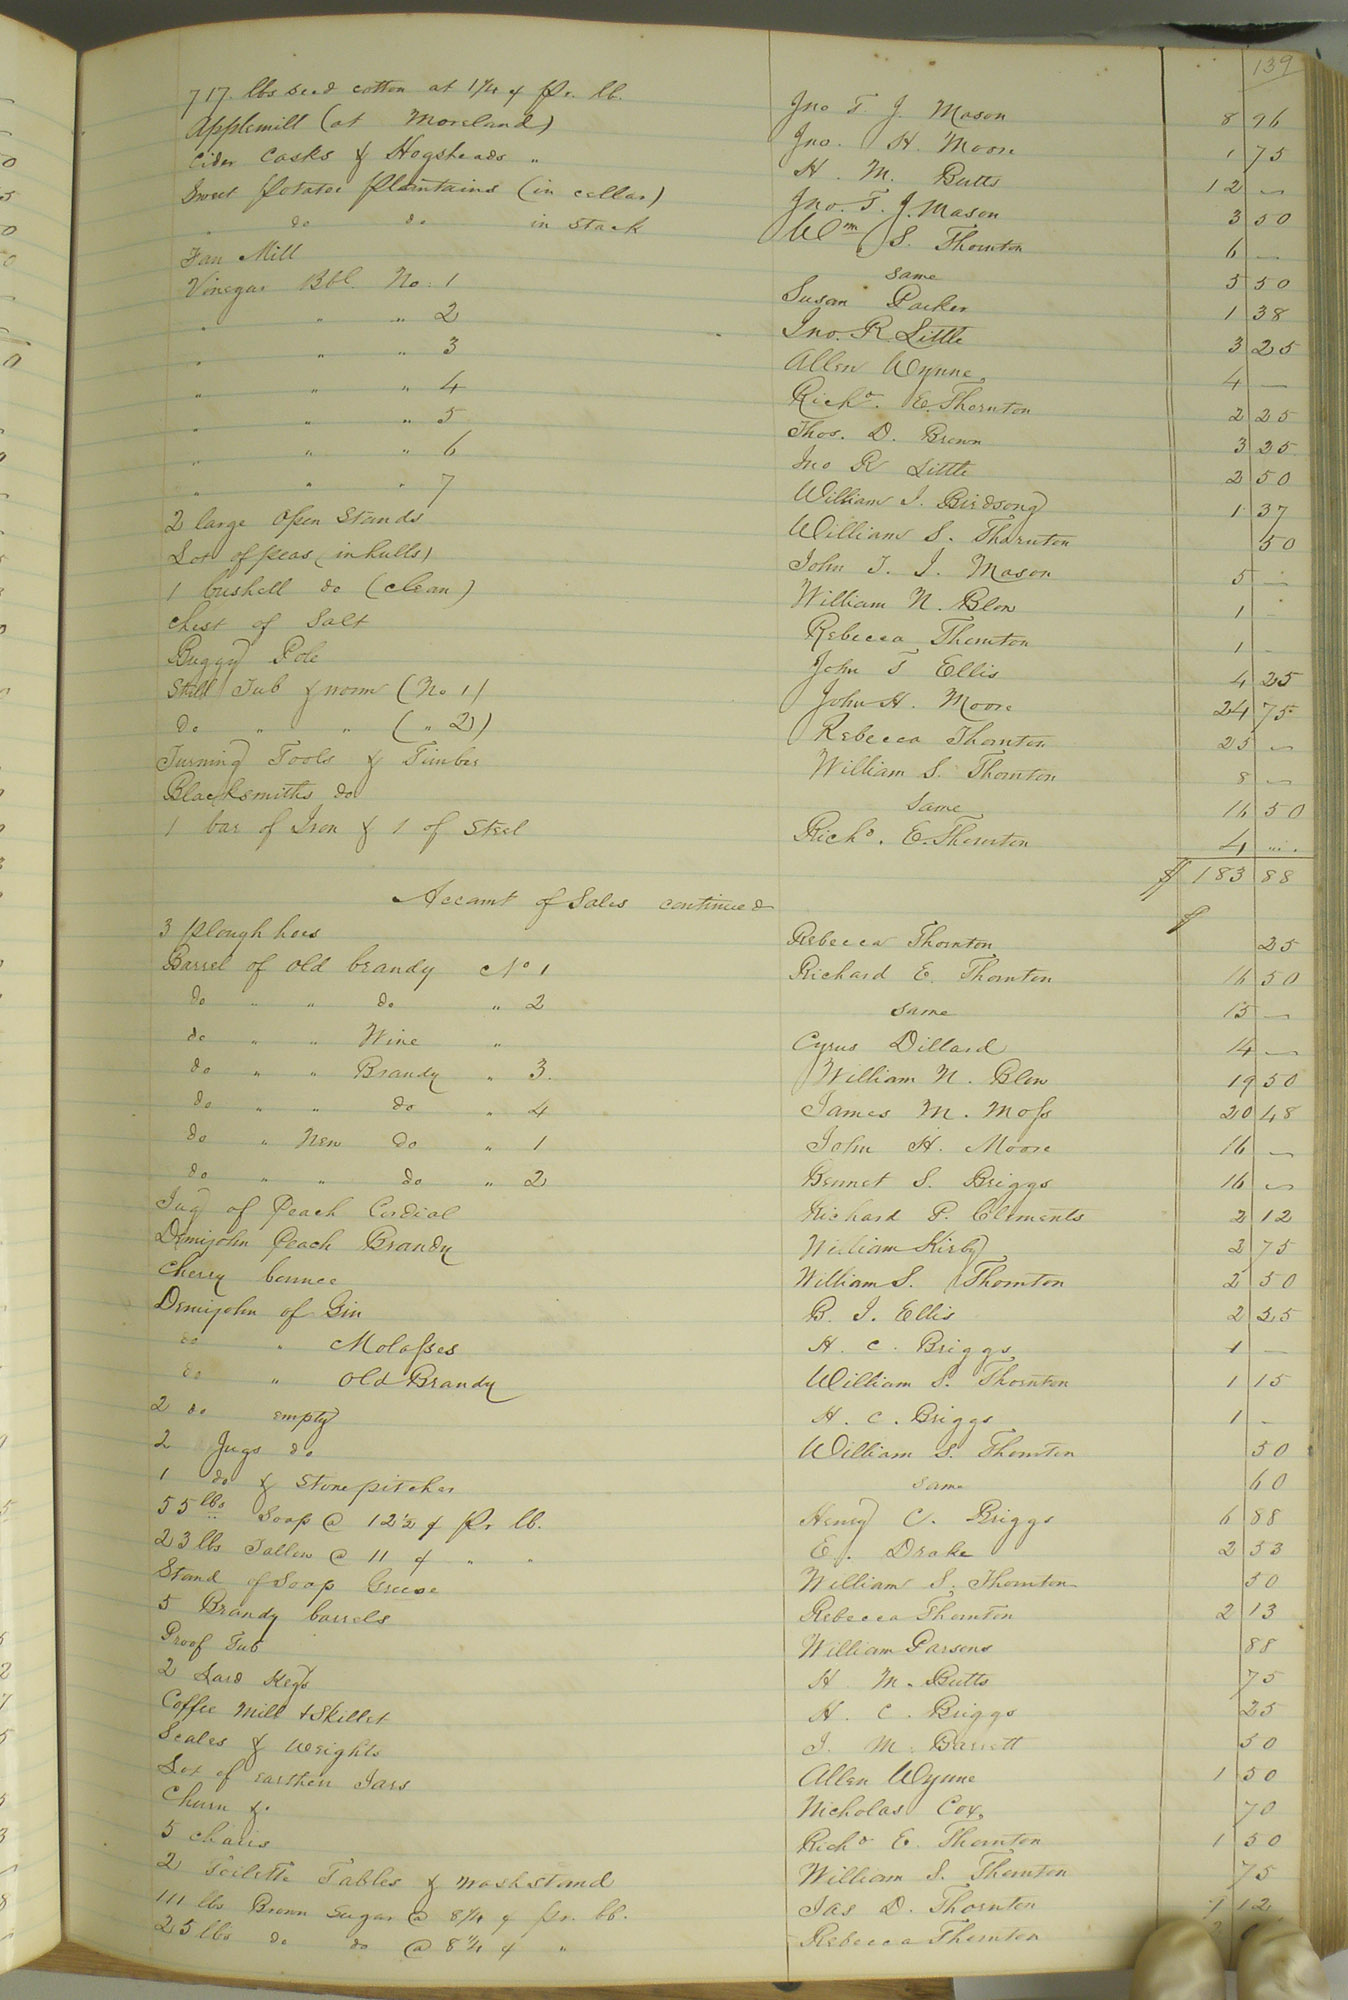 139
717. lbs seed cotton at 1 1/4 ¢ pr. lb. Jno T. J. Mason 8 96
Applemill (at Moreland) Jno. H. Moore 1 75
Cider Casks & Hogsheads " H. M. Butts 12 —
Sweet Potatoe Plantains (in cellar) Jno. T. J. Mason 3 50
" do do in stack Wm S. Thornton 6 —
Fan Mill same 5 50
Vinegar Bbl. No. 1 Susan Parker 1 38
" " " 2 Jno. R. Little 3 25
" " " 3 Allen Wynne, 4 —
" " " 4 Richd. E. Thornton 2 25
" " " 5 Thos. D. Brown 3 25
" " " 6 Jno R Little 2 50
" " " 7 William J. Birdsong 1 37
2 large open Stands William S. Thornton 50
Lot of peas (in hulls) John T. J. Mason 5 —
1 bushell do (clean) William N. Blow 1 -
Chest of Salt Rebecca Thornton 1 -
Buggy Pole John T Ellis 4 25
Still Tub & worm (No 1) John H. Moore 24 75
do " " ( " 2) Rebecca Thornton 25 —
Turning Tools & Timber William S. Thornton 8 —
Blacksmiths do same 16 50
1 bar of Iron & 1 of Steel Richd. E. Thornton 4 ...
$ 183 88
Account of Sales continued $
3 Plough hoes Rebecca Thornton 25
Barrel of old brandy No 1 Richard E. Thornton 16 50
do " " do " 2 same 15 —
do " " Wine " Cyrus Dillard 14 —
do " " Brandy " 3. William N. Blow 19 50
do " " do " 4 James M. Moss 20 48
do " New do " 1 John H. Moore 16 —
do " " do " 2 Bennet S. Briggs 16 —
Jug of Peach Cordial Richard P. Clements 2 12
Demijohn Peach Brandy William Kirby 2 75
Cherry bounce William S. Thornton 2 50
Demijohn of Gin B. J. Ellis 2 25
do " Molasses H. C. Briggs 1 —
do " Old Brandy William S. Thornton 1 15
2 do empty H. C. Briggs 1 -
2 Jugs do William S. Thornton 50
1 do & Stone pitcher same 60
55 lbs Soap @ 12 1/2 ¢ Pr lb. Henry C. Briggs 6 88
23 lbs Tallow @ 11 ¢ " " E. Drake 2 53
Stand of Soap Grease William S. Thornton 50
5 Brandy barrels Rebecca Thornton 2 13
Proof Tub William Parsons 88
2 Lard Kegs H. M. Butts 75
Coffee Mill & Skillet H. C. Briggs 25
Scales & Weights J. M. Barrett 50
Lot of earthen Jars Allen Wynne 1 50
Churn &c Nicholas Cox, 70
5 chairs Richd E. Thornton 1 50
2 Toilette Tables & washstand William S. Thornton 75
111 lbs Brown Sugar @ 8 1/4 ¢ pr. lb. Jas D. Thornton 12
25 lbs do do @ 8 1/4 ¢ " Rebecca Thornton